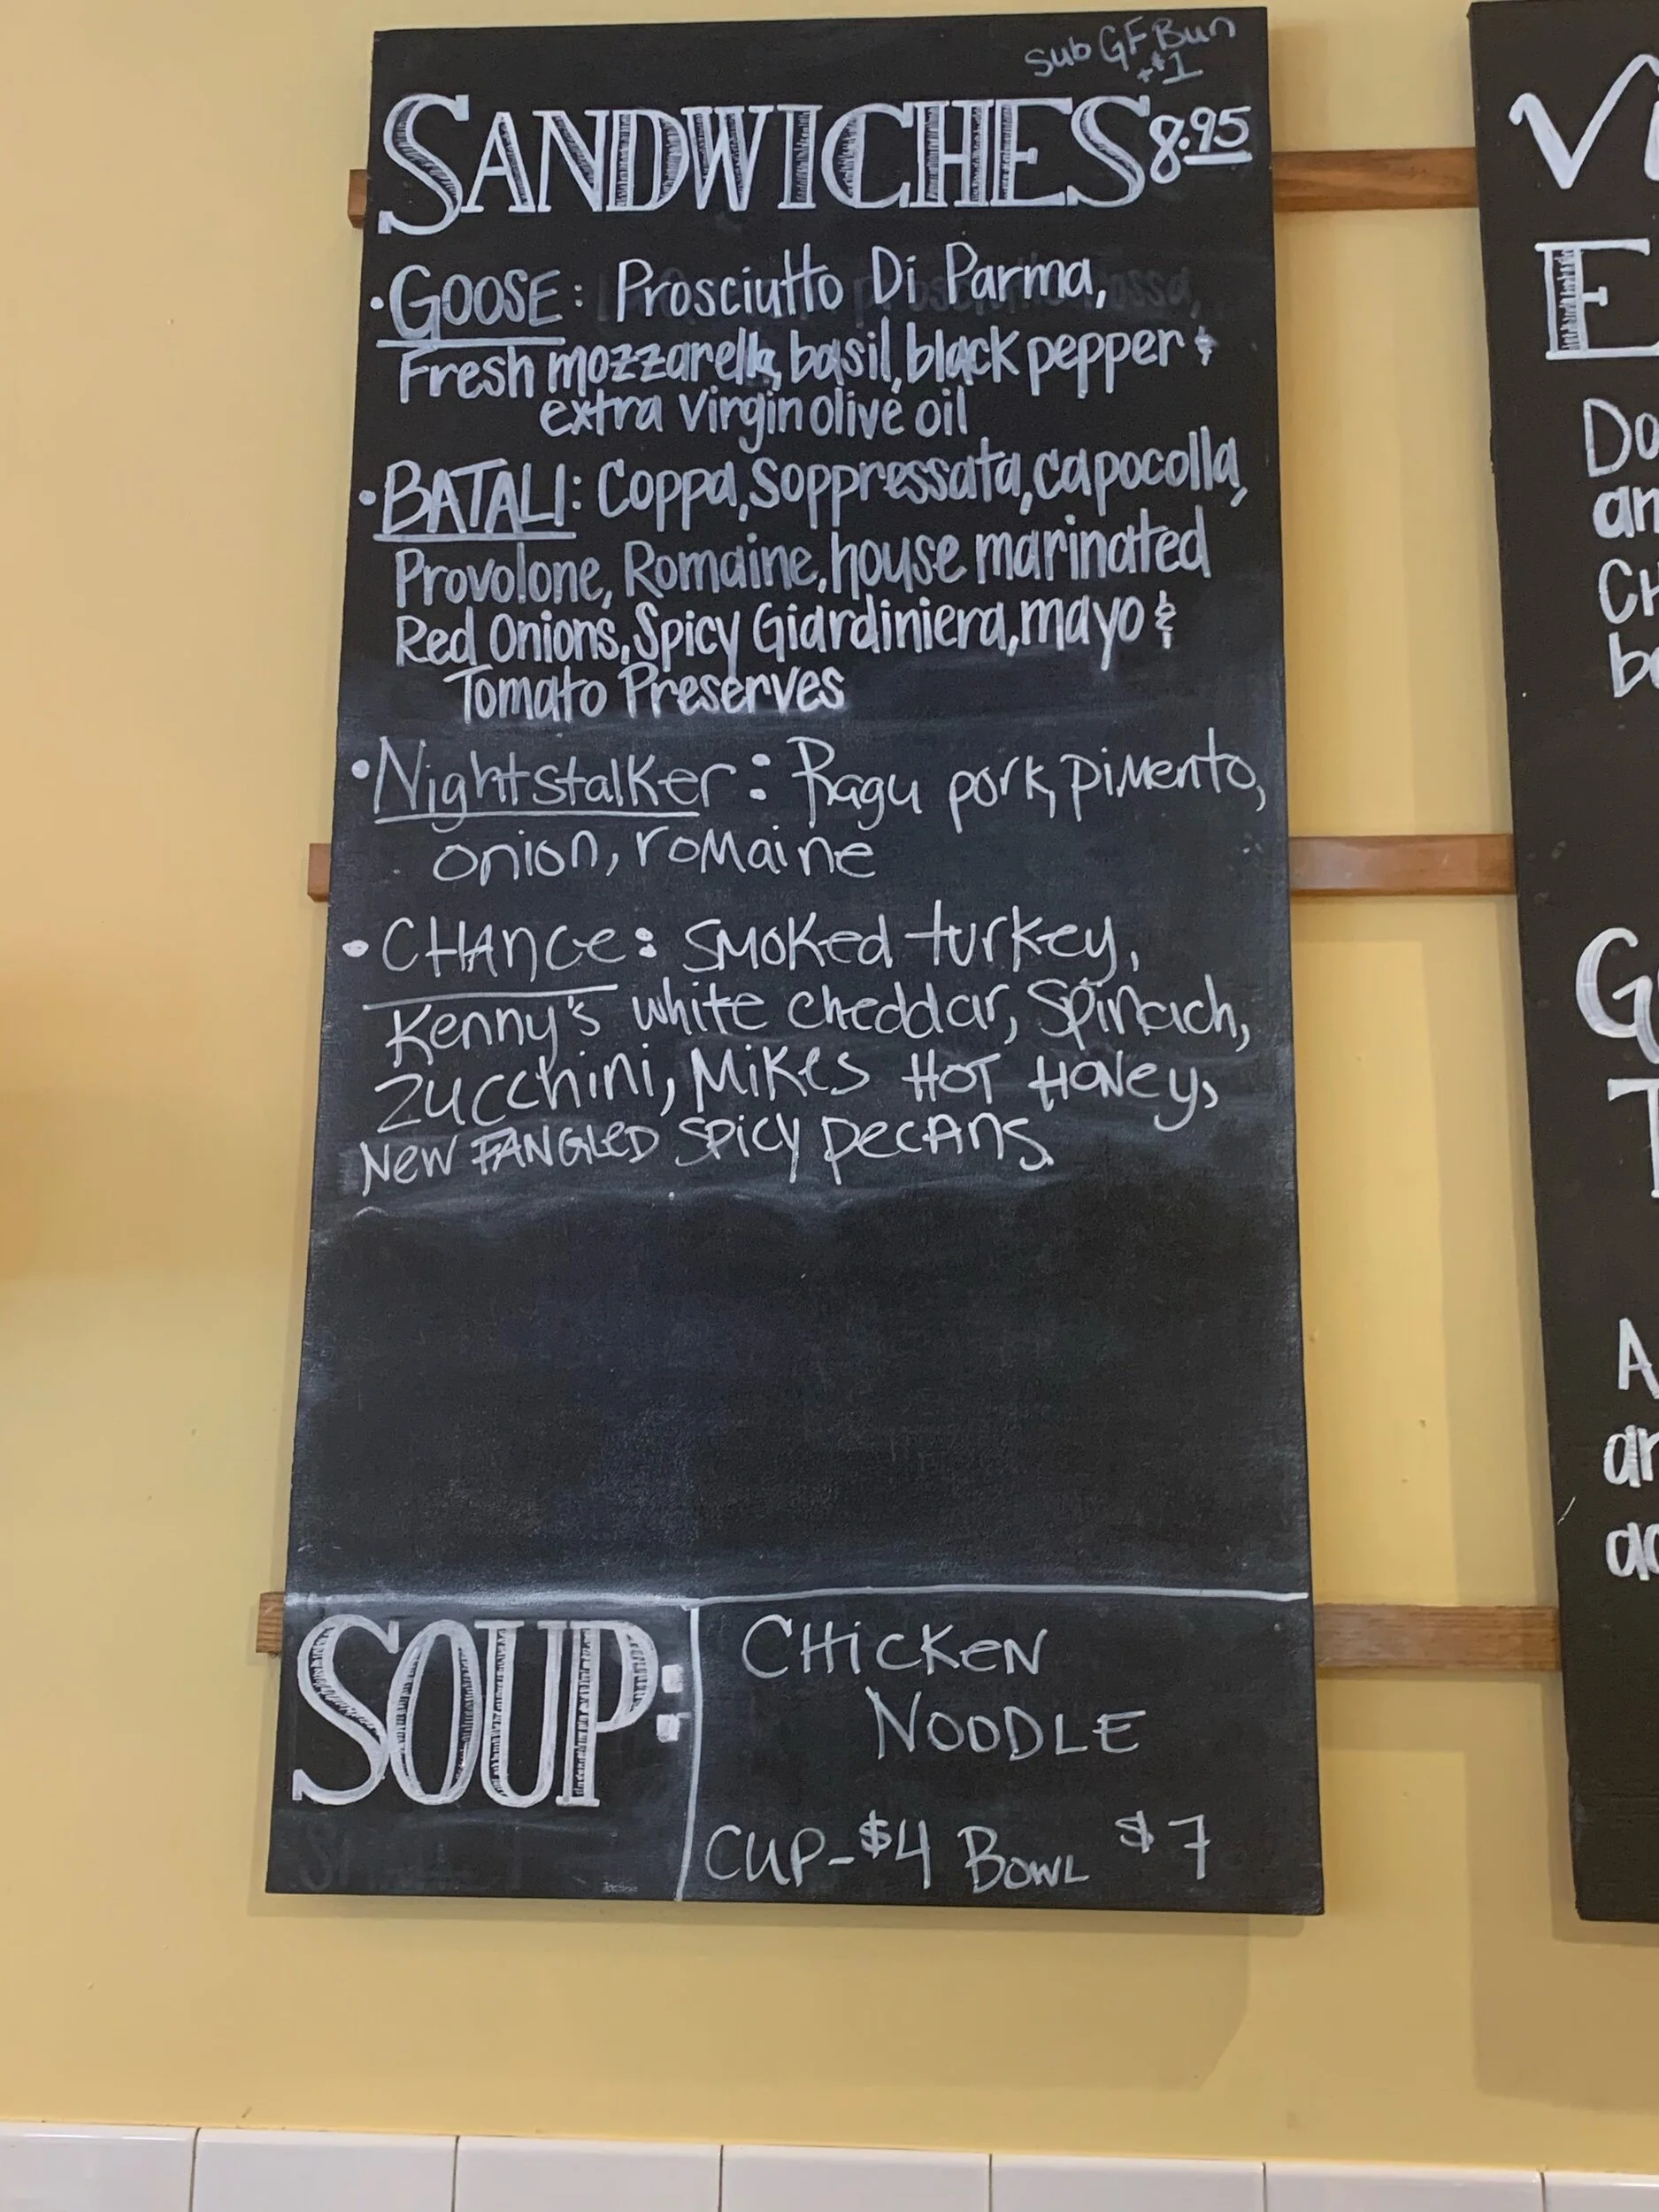 Sub GF Bun
+$1
SANDWICHES 8.95
• GOOSE: Prosciutto Di Parma,
Fresh mozzarella, basil, black pepper &
extra virgin olive oil
• BATALI: Coppa, Soppressata, capocolla,
Provolone, Romaine, house marinated
Red Onions, Spicy Giardiniera, mayo &
Tomato Preserves
• Nightstalker: Ragu pork, pimento,
onion, romaine
• CHANCE: SMOKED turkey,
Kenny's white cheddar, Spinach,
Zucchini, Mikes HOT HONEY,
NEW FANGLED SPICY PECANS
SOUP:
CHICKEN
NOODLE
CUP-$4 BOWL $7